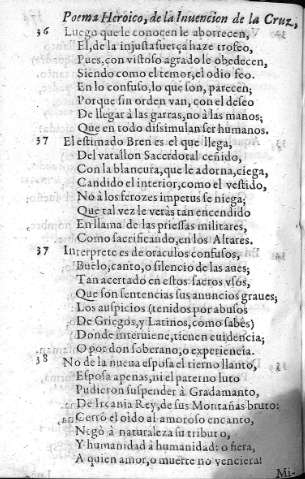 Poema Heroico, de la Inuencion de la Cruz,
36 Luego que le conocen le aborrecen,
El, de la injusta fuerça haze trofeo,
Pues, con vistoso agrado le obedecen,
Siendo como el temor, el odio feo.
En lo confuso, lo que son, parecen;
Porque sin orden van, con el deseo
De llegar à las garras, no à las manos;
Que en todo dissimulan ser humanos.
37 El estimado Bren es el que llega,
Del vatallon Sacerdotal ceñido,
Con la blancura, que le adorna, ciega,
Candido el interior, como el vestido,
No à los ferozes impetus se niega;
Que tal vez le veràs tan encendido
En llama de las priessas militares,
Como sacrificando, en los Altares.
37 Interprete es de oraculos confusos,
Buelo, canto, o silencio de las aues;
Tan acertado en estos sacros vsos,
Que son sentencias sus anuncios graues;
Los auspicios (tenidos por abusos
De Griegos, y Latinos, como sabès)
Donde interuiene, tienen euidencia;
O por don soberano, o experiencia.
38 No de la nueua esposa el tierno llanto,
Esposa apenas, ni el paterno luto
Pudieron suspender à Gradamanto,
De Ircania Rey, de sus Montañas bruto:
Cerrò el oido al amoroso encanto,
Negò à naturaleza su tributo,
Y humanidad à humanidad: o fiera,
A quien amor, o muerte no venciera!
Mi-